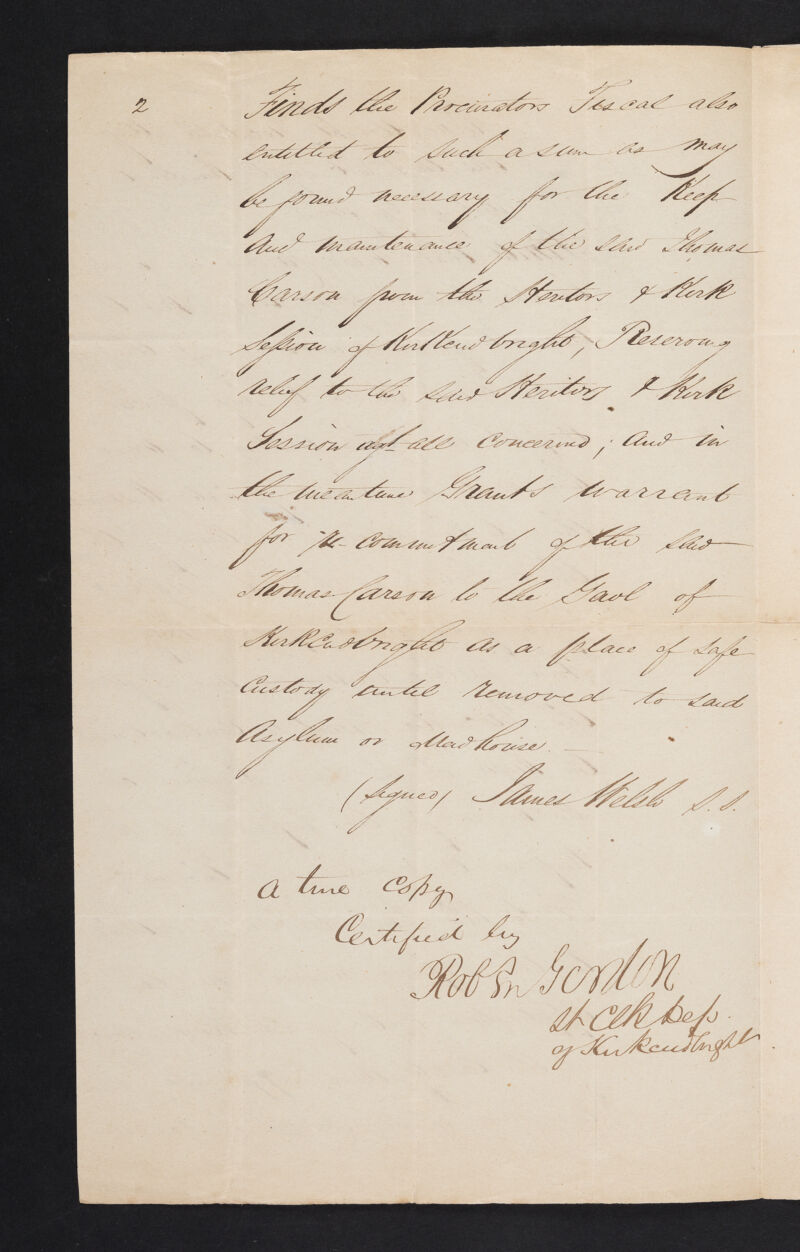 2
Finds the Procurators Fiscal also
entitled to such a sum as may
be found necessary for the Keep
and maintenance of the said Thomas
Carson from the Heritors & Kirk
Session of Kirkcudbright, Reserving
relief to the said Heritors & Kirk
Session agt all concerned; and in
the meantime Grants warrant
for re-commitment of the said
Thomas Carson to the Gaol of
Kirkcudbright as a place of safe
custody until removed to said
Asylum or Madhouse. —
(Signed) James Welsh S. S.
A true copy
Certified by
Gordon
St Clk Dep.
of Kirkcudbright